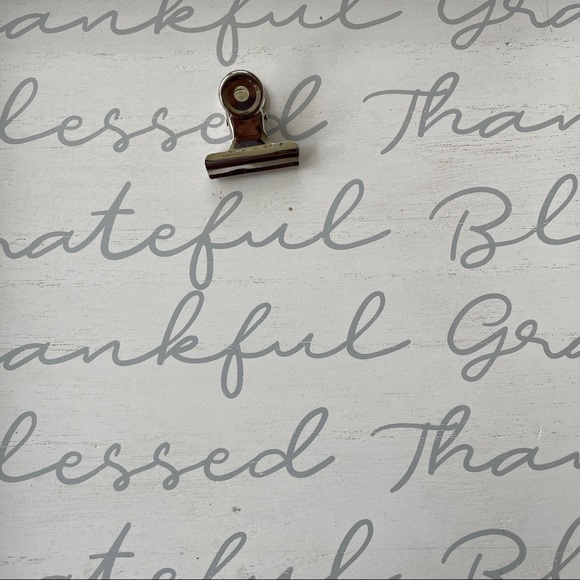 ankful Gra
lessed Than
rateful Bl
ankful Gra
lessed Than
rateful Bl